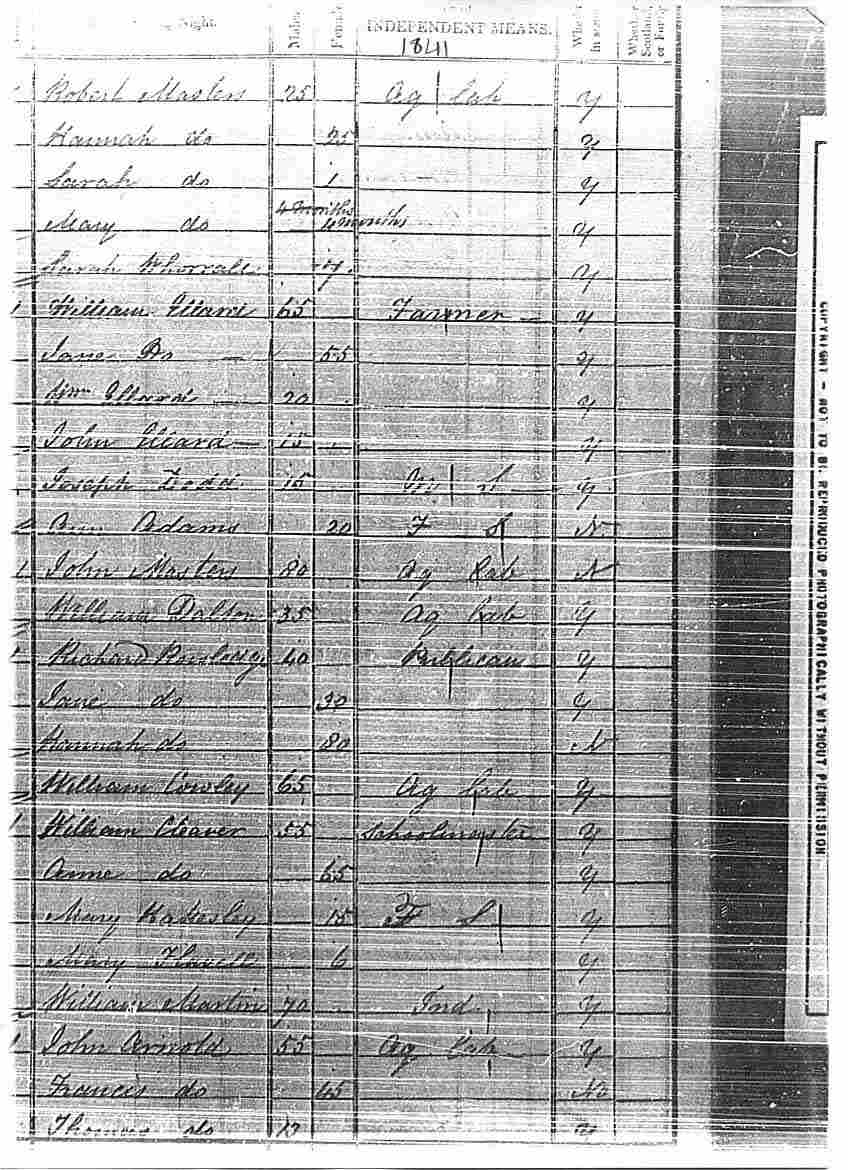 Night.
Males
INDEPENDENT MEANS.
1841
Robert Masters 25 Ag Lab Y
Hannah do 25 Y
Sarah do 1 Y
Mary do 4 months 4 months Y
Sarah Whorrall 7 Y
William Ellard 65 Farmer Y
Jane Do 55 Y
Wm Ellard 20 Y
John Ellard 15 Y
Joseph Todd 15 M S Y
Ann Adams 20 F S N
John Masters 80 Ag Lab N
William Dalton 35 Ag Lab Y
Richard 40 Publican Y
Jane do 30 Y
Hannah do 80 N
William Cowley 65 Ag Lab Y
William Cleaver 55 Schoolmaster Y
Anne do 65 Y
Mary 15 F S Y
Mary Flavell 6 Y
William Martin 70 Ind Y
John Arnold 55 Ag Lab Y
Francis do 45 No
Thomas do Y
COPYRIGHT – NOT TO BE REPRODUCED PHOTOGRAPHICALLY WITHOUT PERMISSION